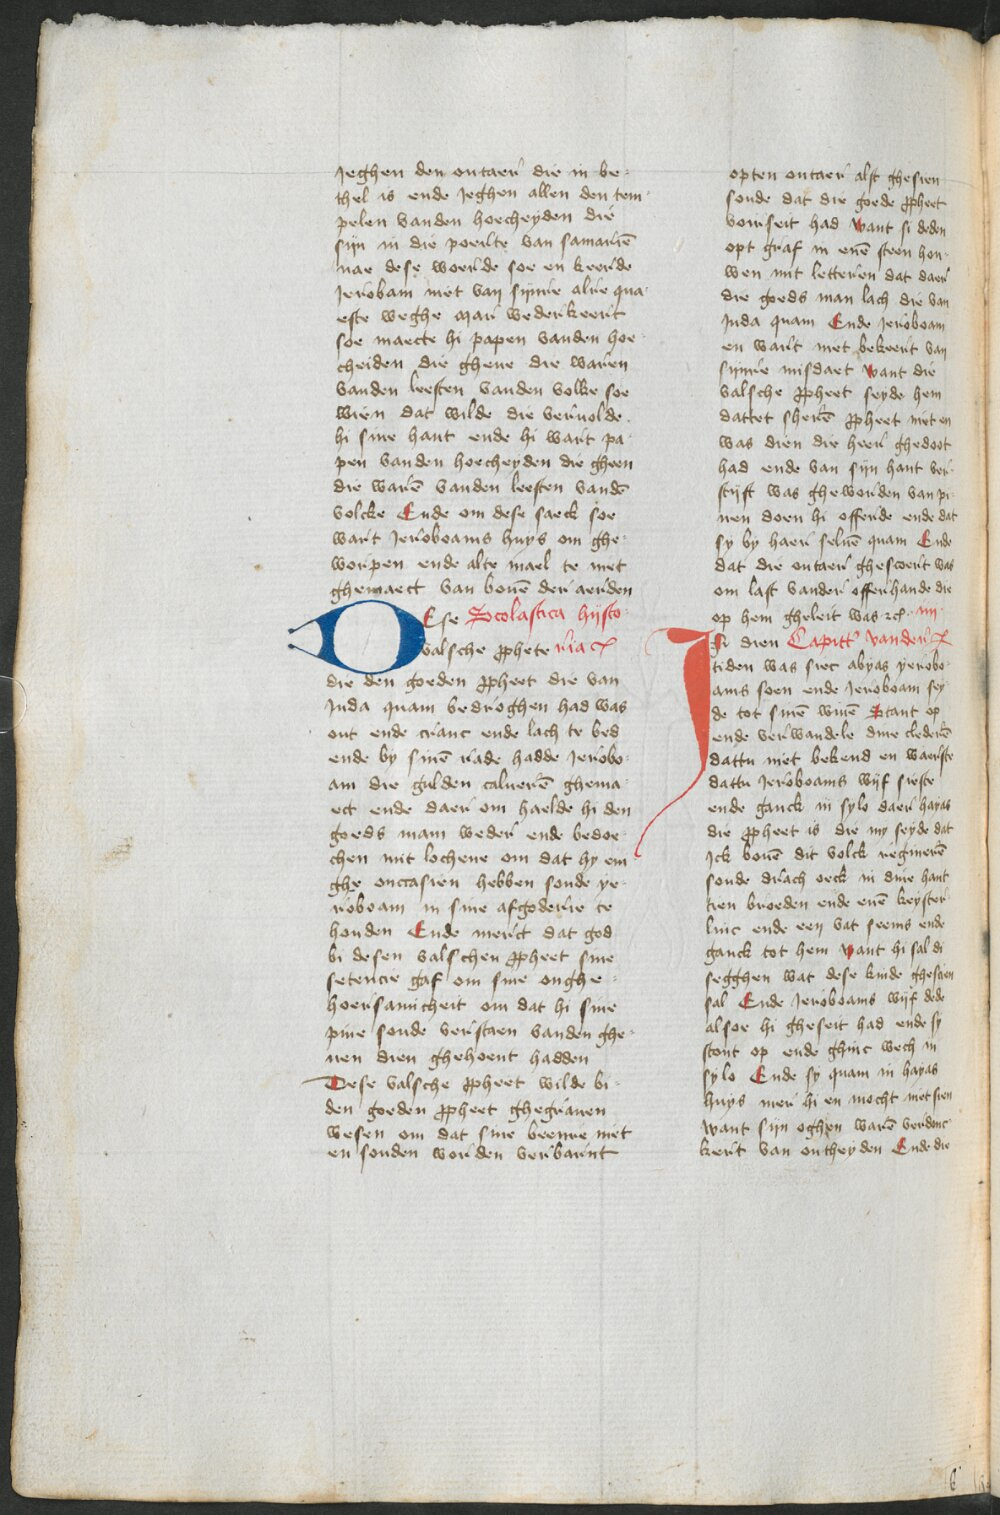 jeghen den outaer die in be-
thel is ende jeghen allen den tem-
pelen vanden hoecheyden die
sijn in die poerte van samariē
nae dese woerde soe en keerde
Jerobam niet van sijnre alre qua-
este weghe Mar wederkeert
soe maecte hi papen vanden hoe-
cheiden die ghene die waren
vanden leesten vanden volke soe
wien dat wilde die vervolde
hi sine hant ende hi wart pa-
pen vanden hoecheyden die gheen
die warē vanden leesten vandē
volcke Ende om dese saeck soe
wart Jeroboams huys om ghe-
worpen ende alte mael te niet
ghemaect van bouē der aerden
DEse Scolastica hijsto-
valsche pphete ria
die den goeden ppheet die van
Juda quam bedroghen had was
out ende cranc ende lach te bed
ende by sinē rade hadde Jerobo-
am die gulden calueren ghema-
ect ende daer om haelde hi den
goeds man weder ende bedroe-
chen mit lochene om dat hy em
ghe occasien hebben soude ye-
roboam in sine afgoderie te
houden Ende merct dat god
bi desen valschen ppheet sine
setencie gaf om sine onghe-
hoersamicheit om dat hi sine
pine soude verstaen vanden ghe-
nen dien ghehoent hadden
Dese valsche ppheet wilde bi
den goeden ppheet ghegrauen
wesen om dat sine beenre niet
en souden worden verbarnt
opten outaer alst ghesien
soude dat die goede ppheet
voirseit had want si deden
opt graf in enē steen hou-
wen mit letteren dat daer
die goeds man lach die van
Juda quam Ende Jeroboam
en wart niet bekeert van
sijnre misdaet want die
valsche ppheet seyde hem
dattet sherē ppheet niet en
was dien die heer ghedoot
had ende van sijn hant ver-
stijft was gheworden van pi-
nen doen hi offerde ende dat
sy by haer seluē quam Ende
dat die outaer ghescoert was
om last vander offerhande die
op hem gheleit was
In dien Capittel vander
tiden was siec abyas yerobo-
ams soen ende Jeroboam sey-
de tot sinē wiue Stant op
ende verwandele dine clederē
dattu niet bekend en waerste
dattu Jeroboams wijf sieste
ende ganck in sylo daer hayas
die ppheet is die my seyde dat
Ick bouē dit volck regnierē
soude drach oeck in dine hant
tien broeden ende enē keyster
linc ende een vat seems ende
ganck tot hem want hi sal di
segghen wat dese kinde ghescien
sal Ende Jeroboams wijf dede
alsoe hi gheseit had ende sy
stont op ende ghinc wech in
sylo Ende sy quam in hayas
huys mer hi en mocht niet sien
want sijn oghen warē verdonc-
kert van outheyden Ende die